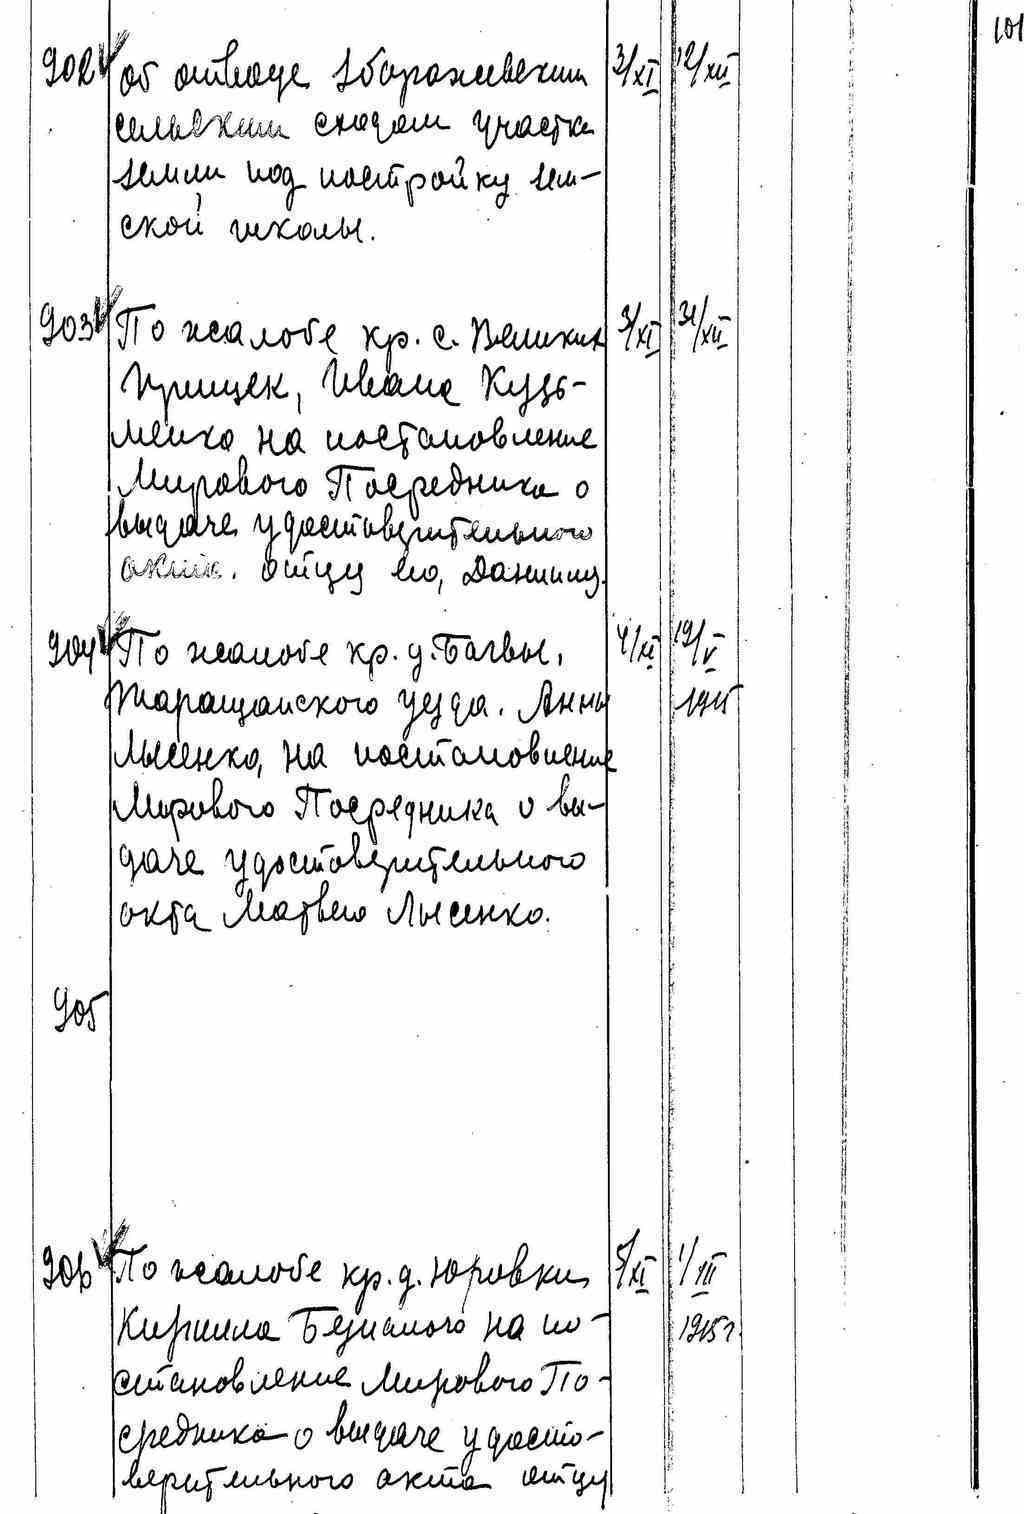 101
902 об отводе Збаражевским 3/XI 12/XII
сельским сходом участка
земли под постройку зем-
ской школы.
903 По жалобе кр. с. Великих 3/XI 31/XII
Прицек, Ивана Кузь-
менко на постановление
Мирового Посредника о
выдаче удостоверительного
акта. отцу его, Даниилу.
904 По жалобе кр. д. Багвы, 4/XI 19/V
Таращанского уезда. Анны 1915
Лысенко, на постановление
Мирового Посредника о вы-
даче удостоверительного
акта Матвею Лысенко.
905
906 По жалобе кр. д. Юровки, 5/XI 1/VIII
Кирилла Безпалого на по- 1915 г.
становление Мирового По-
средника о выдаче удосто-
верительного акта отцу